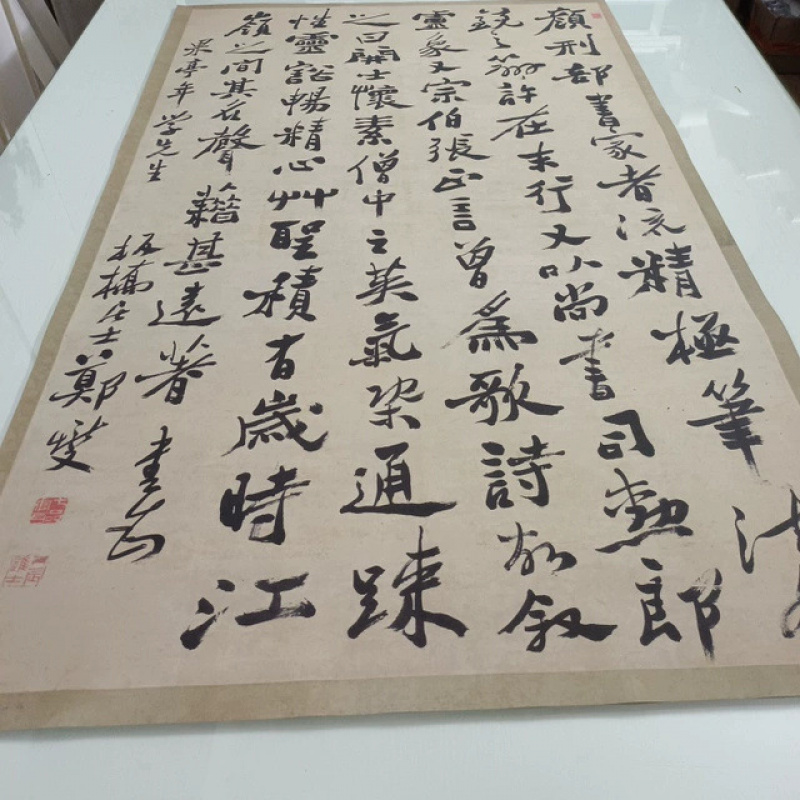 顔刑部書家者流精極筆法
鏡之辨許在末行又以尚書司勲郎
靈象又宗伯張正言曾為歌詩故叙
之曰開士懷素僧中之英氣染通踈
性靈豁暢精心艸聖積有歲時江
嶺之間其名聲藉甚遠著 書為
亭年学先生
板橋居士鄭燮